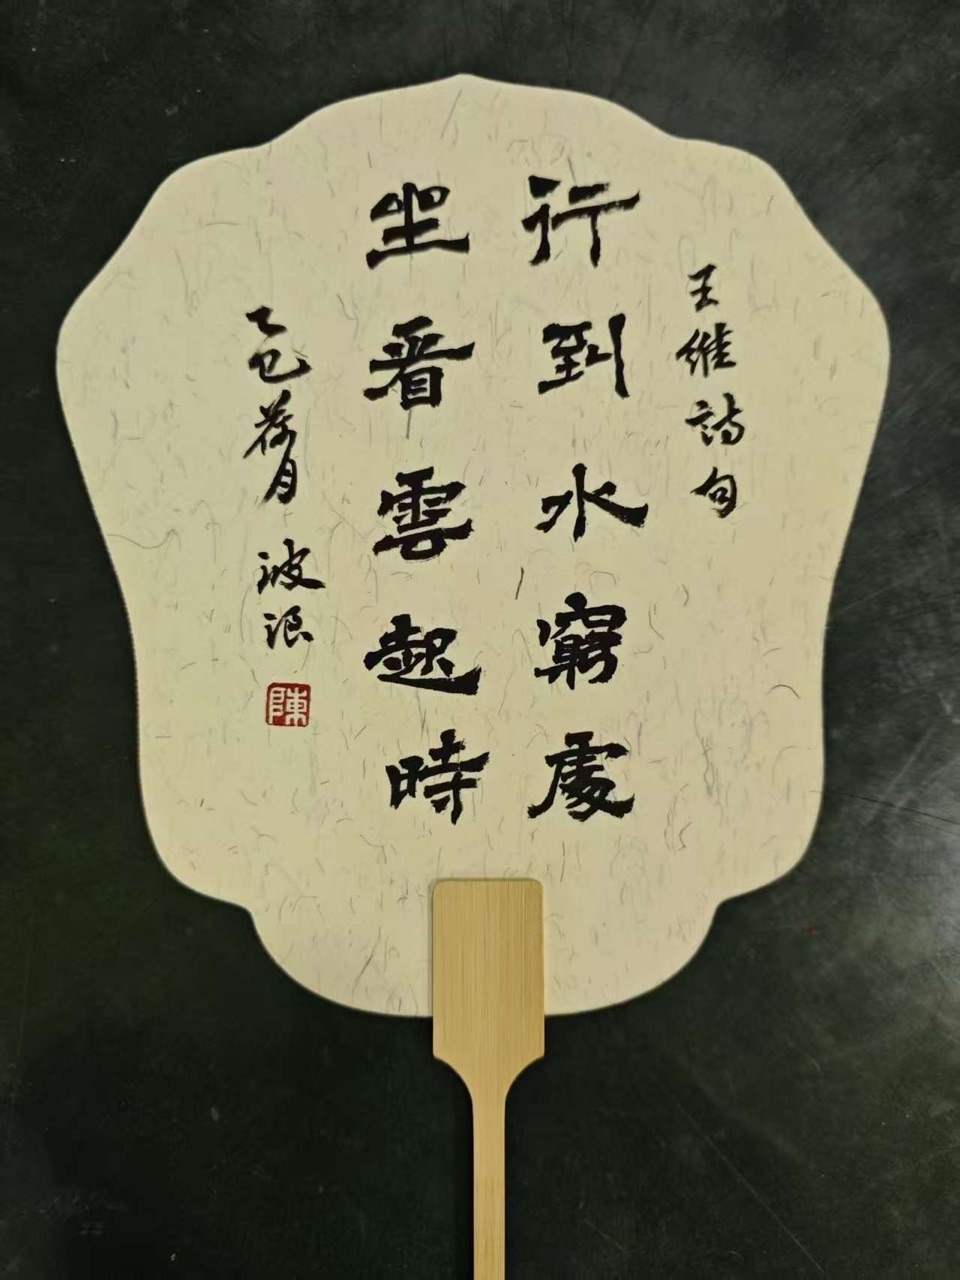 王維詩句
行到水窮處
坐看雲起時
乙巳荷月
波浪
陳